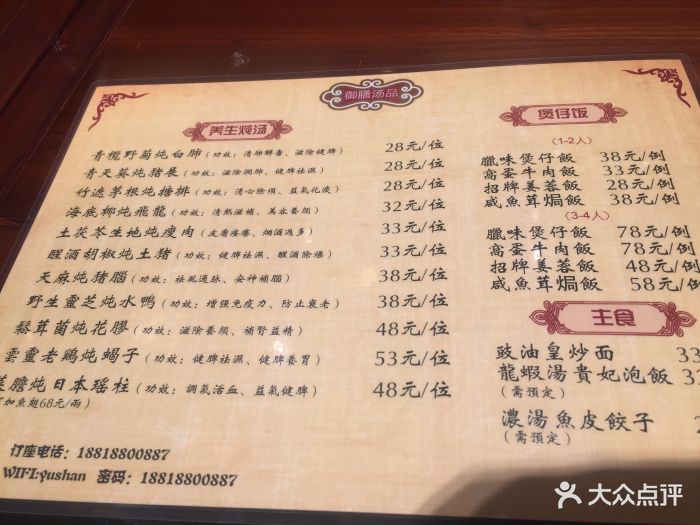 御膳汤品
养生炖汤
青欖野菊炖白肺(功效：清肺解毒、滋陰健脾) 28元/位
青天葵炖豬展(功效：滋陰潤肺、健脾祛濕) 28元/位
竹遮茅根炖搪排(功效：清心除煩、益氣化痰) 28元/位
海底椰炖飛龍(功效：清熱滋補、美容養顏) 32元/位
土茯苓生地炖瘦肉(皮膚疼癢、烟酒過多) 33元/位
胵酒胡椒炖土猪(功效：健脾祛濕、醒酒除燥) 33元/位
天麻炖豬腦(功效：祛風通脉、安神補腦) 38元/位
野生靈芝炖水鴨(功效：增强免疫力、防止衰老) 38元/位
鬆茸菌炖花膠(功效：滋陰養顏、補腎益精) 48元/位
雲靈老鷄炖蝎子(功效：健脾祛濕、健脾養胃) 53元/位
膽炖日本瑶柱(功效：調氣活血、益氣健脾) 48元/位
加魚翅68元/兩)
订座电话：18818800887
WIFI:yushan 密码：18818800887
煲仔饭
(1-2人)
臘味煲仔飯 38元/例
窩蛋牛肉飯 33元/例
招牌姜蓉飯 28元/例
咸魚茸焗飯 38元/例
(3-4人)
臘味煲仔飯 78元/例
窩蛋牛肉飯 78元/例
招牌姜蓉飯 48元/例
咸魚茸焗飯 58元/例
主食
豉油皇炒面 33
龍蝦湯貴妃泡飯
(需預定)
濃湯魚皮餃子
(需預定)
大众点评